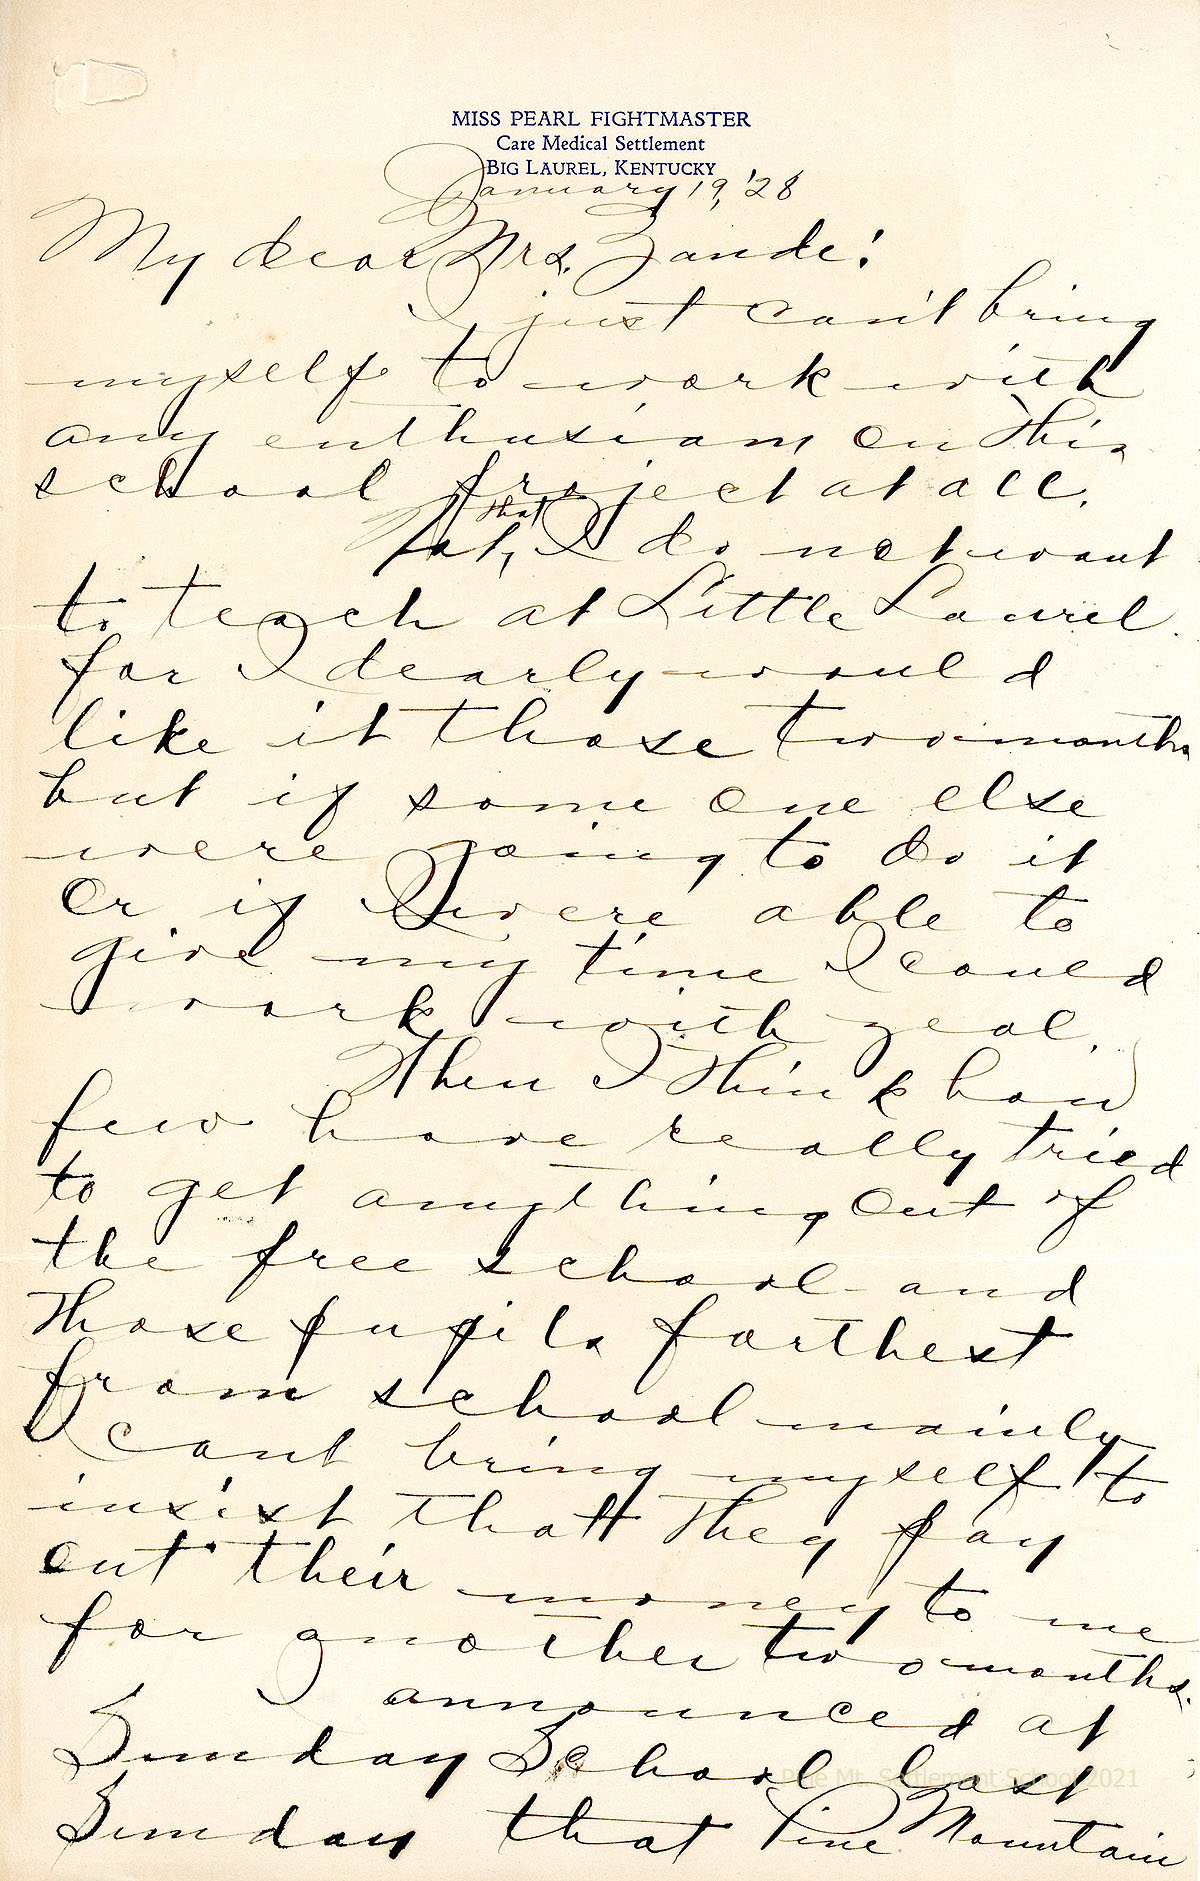 MISS PEARL FIGHTMASTER
Care Medical Settlement
BIG LAUREL, KENTUCKY
January 19, '28
My dear Mrs. Zande:
I just can't bring
myself to work with
any enthusiasm on this
school project at all.
Not, that I do not want
to teach at Little Laurel
for I dearly would
like it those two months
but if some one else
were going to do it
or if I were able to
give my time I could
work with zeal.
Then I think how
few have really tried
to get anything out of
the free school and
those pupils farthest
from school mainly
I cant bring myself to
insist that they pay
out their money to me
for another two months.
I announced at
Sunday School last
Sunday that Pine Mountain
Pine Mt. Settlement School 2021